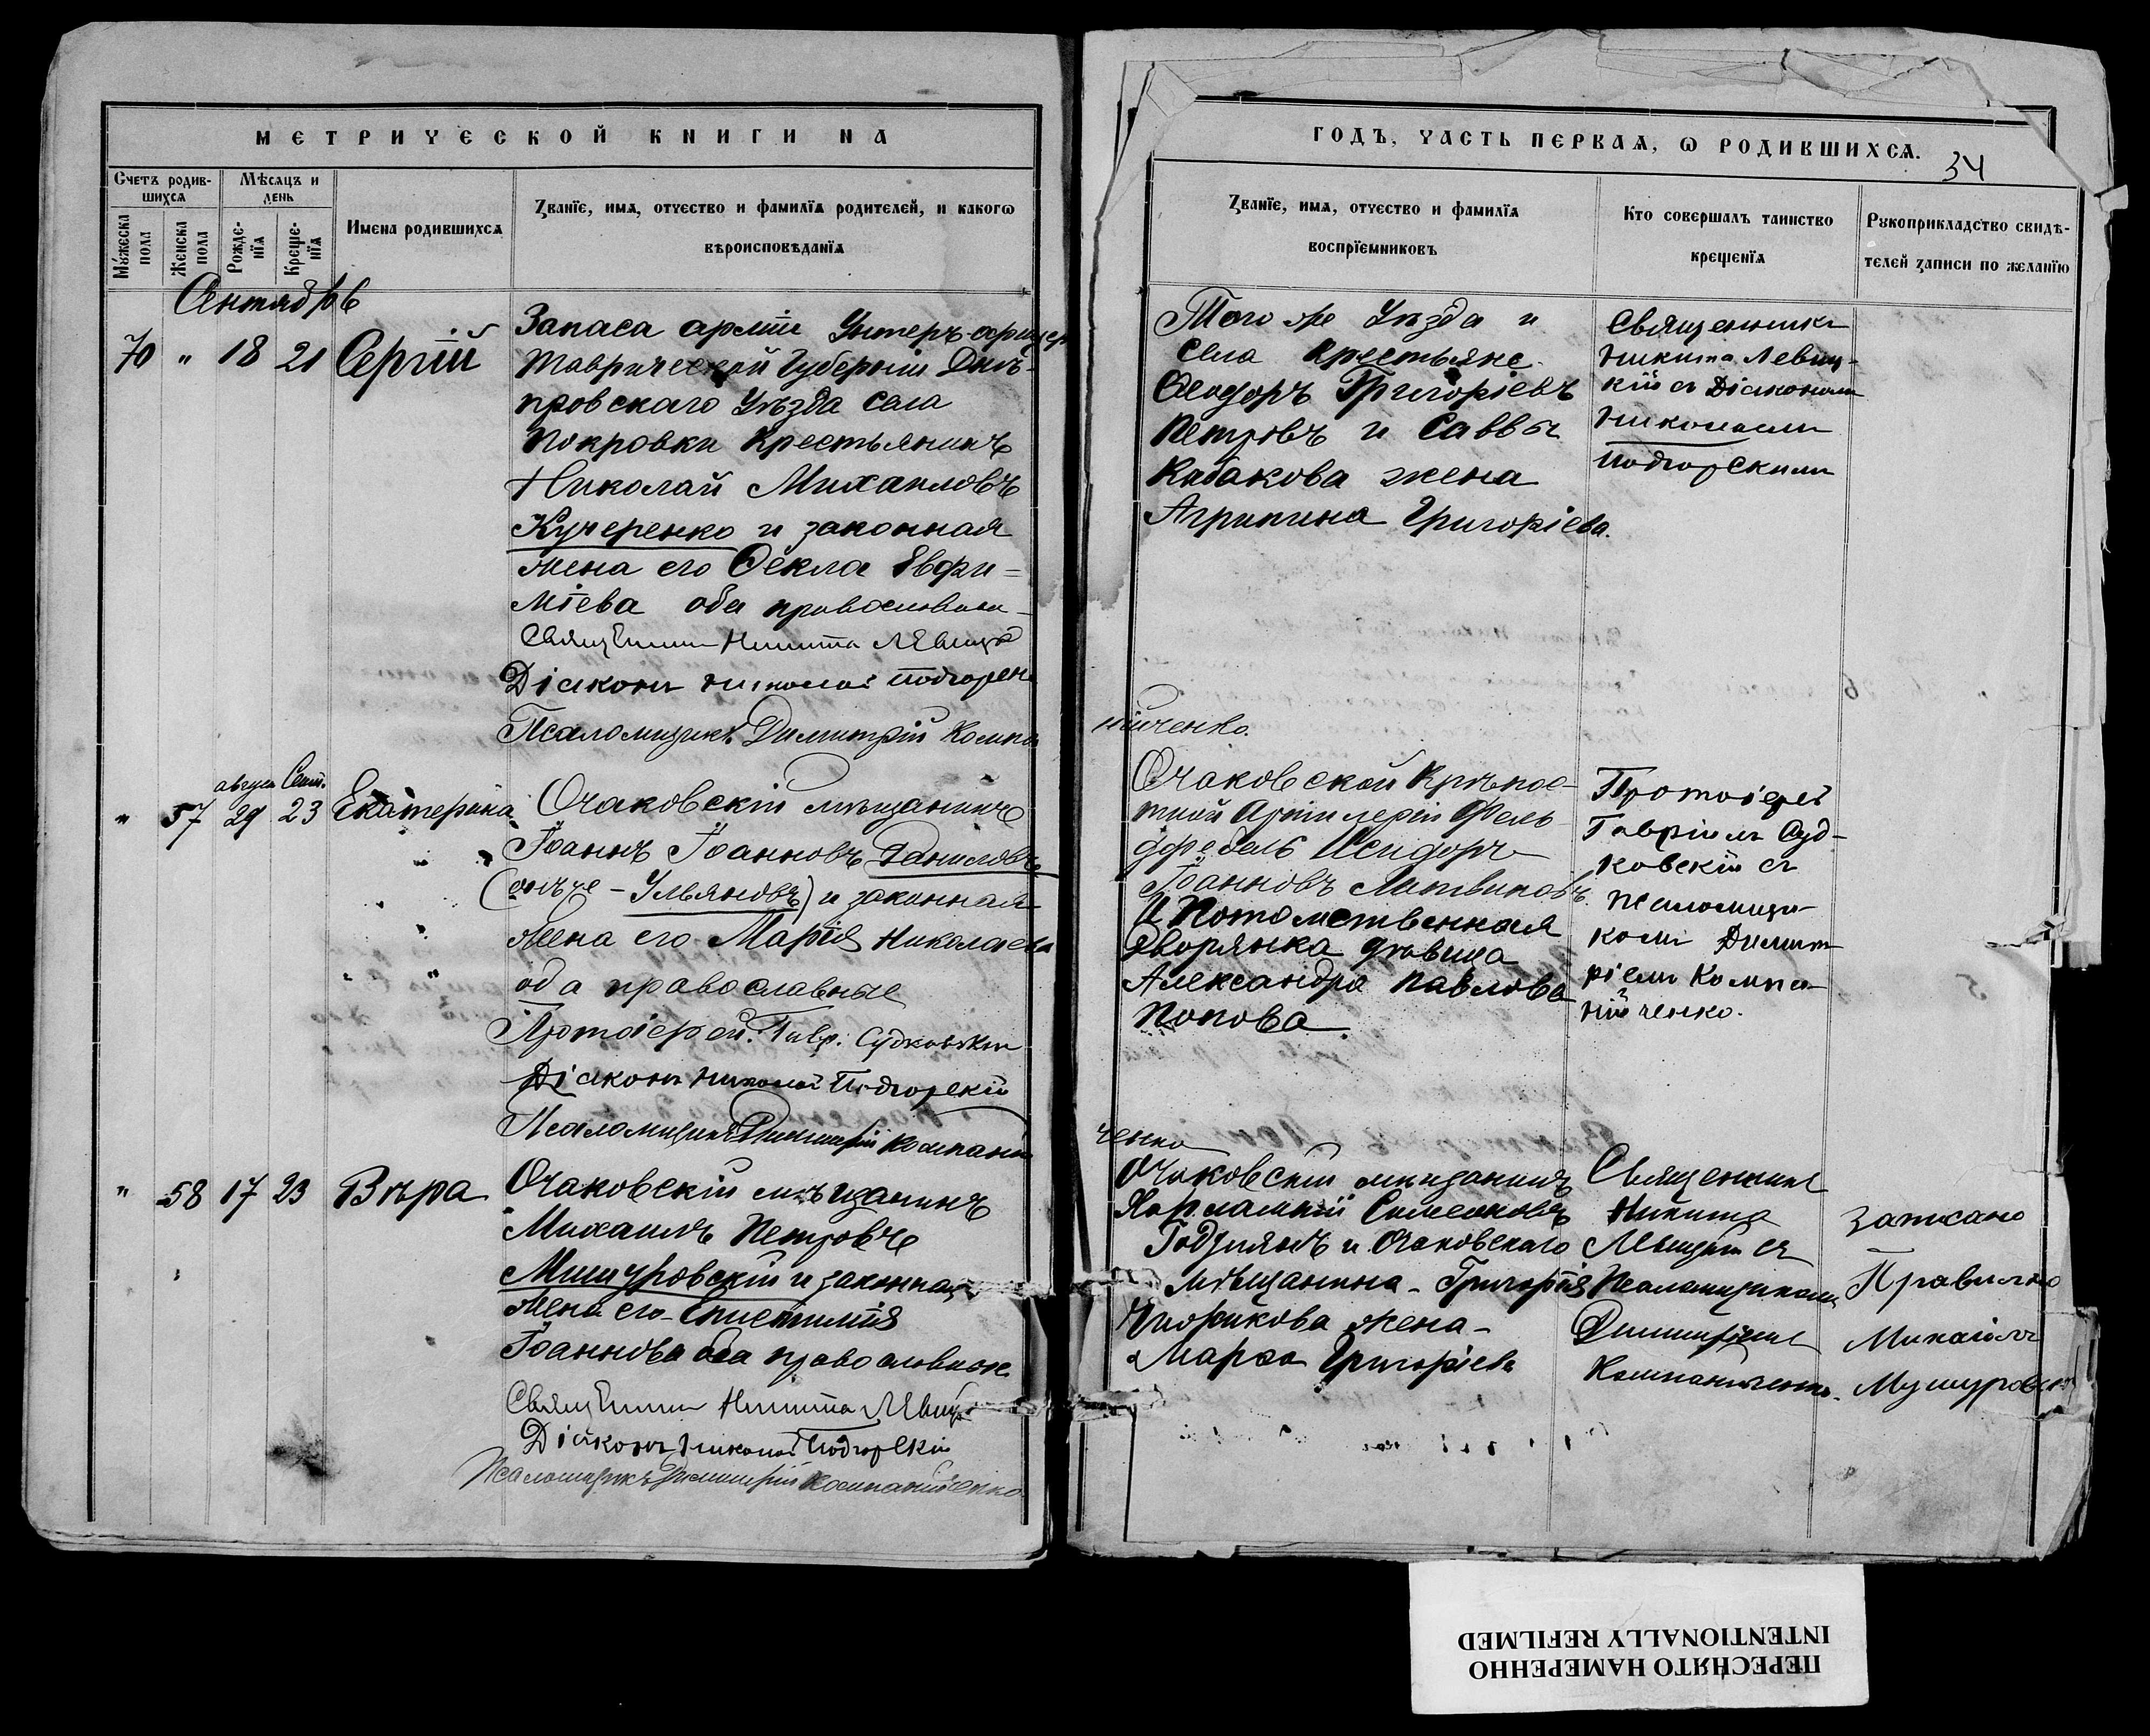 МЕТРИЧЕСКОЙ КНИГИ НА
Счетъ родив-
шихся
Мѣсяцъ и
день
Мужеска
пола
Женска
пола
Рожде-
нїя
Креще-
нїя
Имена родившихся
Званїе, имя, отчество и фамилїя родителей, и какогѡ
вѣроисповѣданїя
Сентябрь
70 " 18 21 Сергій
Запаса арміи Унтеръ-офицеръ
Таврической Губерніи Днѣ-
провскаго Уѣзда села
Покровки крестьянинъ
Николай Михаиловъ
Кучеренко и законная
жена его Ѳекла Евфи-
міева оба православны
Священникъ Никита Левицк
Діаконъ Николай Подгорск
Псаломщикъ Димитрій Компа
август Сент.
" 57 29 23 Екатерина
Очаковскій мѣщанинъ
Іоаннъ Іоанновъ Даниловъ
(онъ же - Ульяновъ) и законная
жена его Марія Николаева
оба православные
Протоіерей Гавр. Судковскій
Діаконъ Николай Подгорскій
Псаломщикъ Димитрій Компаній
" 58 17 23 Вѣра
Очаковскій мѣщанинъ
Михаилъ Петровъ
Мишуровскій и законная
жена его Епистимія
Іоаннова оба православные
Священникъ Никита Левицк
Діаконъ Николай Подгорскій
Псаломщикъ Димитрій Компанійченко
ГОДЪ, ЧАСТЬ ПЕРВАЯ, Ѡ РОДИВШИХСЯ.
34
Званїе, имя, отчество и фамилїя
воспрїемниковъ
Кто совершалъ таинство
крещенїя
Рукоприкладство свидѣ-
телей записи по желанїю
Того же Уѣзда и
села крестьяне
Ѳеодоръ Григоріевъ
Петровъ и Саввы
Кабакова жена
Агрипина Григоріева.
Священникъ
Никита Левиц-
кій съ Діакономъ
Николаемъ
Подгорскимъ
нійченко.
Очаковской Крѣпос-
тной Артилеріи Фель
дфебель Исидоръ
Іоанновъ Литвиновъ
и Потомственная
дворянка дѣвица
Александра Павлова
Попова
Протоіерей
Гавріилъ Суд-
ковскій съ
Псаломщи-
комъ Димит-
ріемъ Компа-
нійченко.
ченко
Очаковскій мѣщанинъ
Харлампій Симеоновъ
и Очаковскаго
мѣщанина - Григорія
жена -
Марѳа Григоріева
Священникъ
Никита
Левицкій съ
Псаломщикомъ
Димитріемъ
Компанійченко.
Записано
Правильно
Михаилъ
Мушуровскій
ПЕРЕСНЯТО НАМЕРЕННО
INTENTIONALLY REFILMED